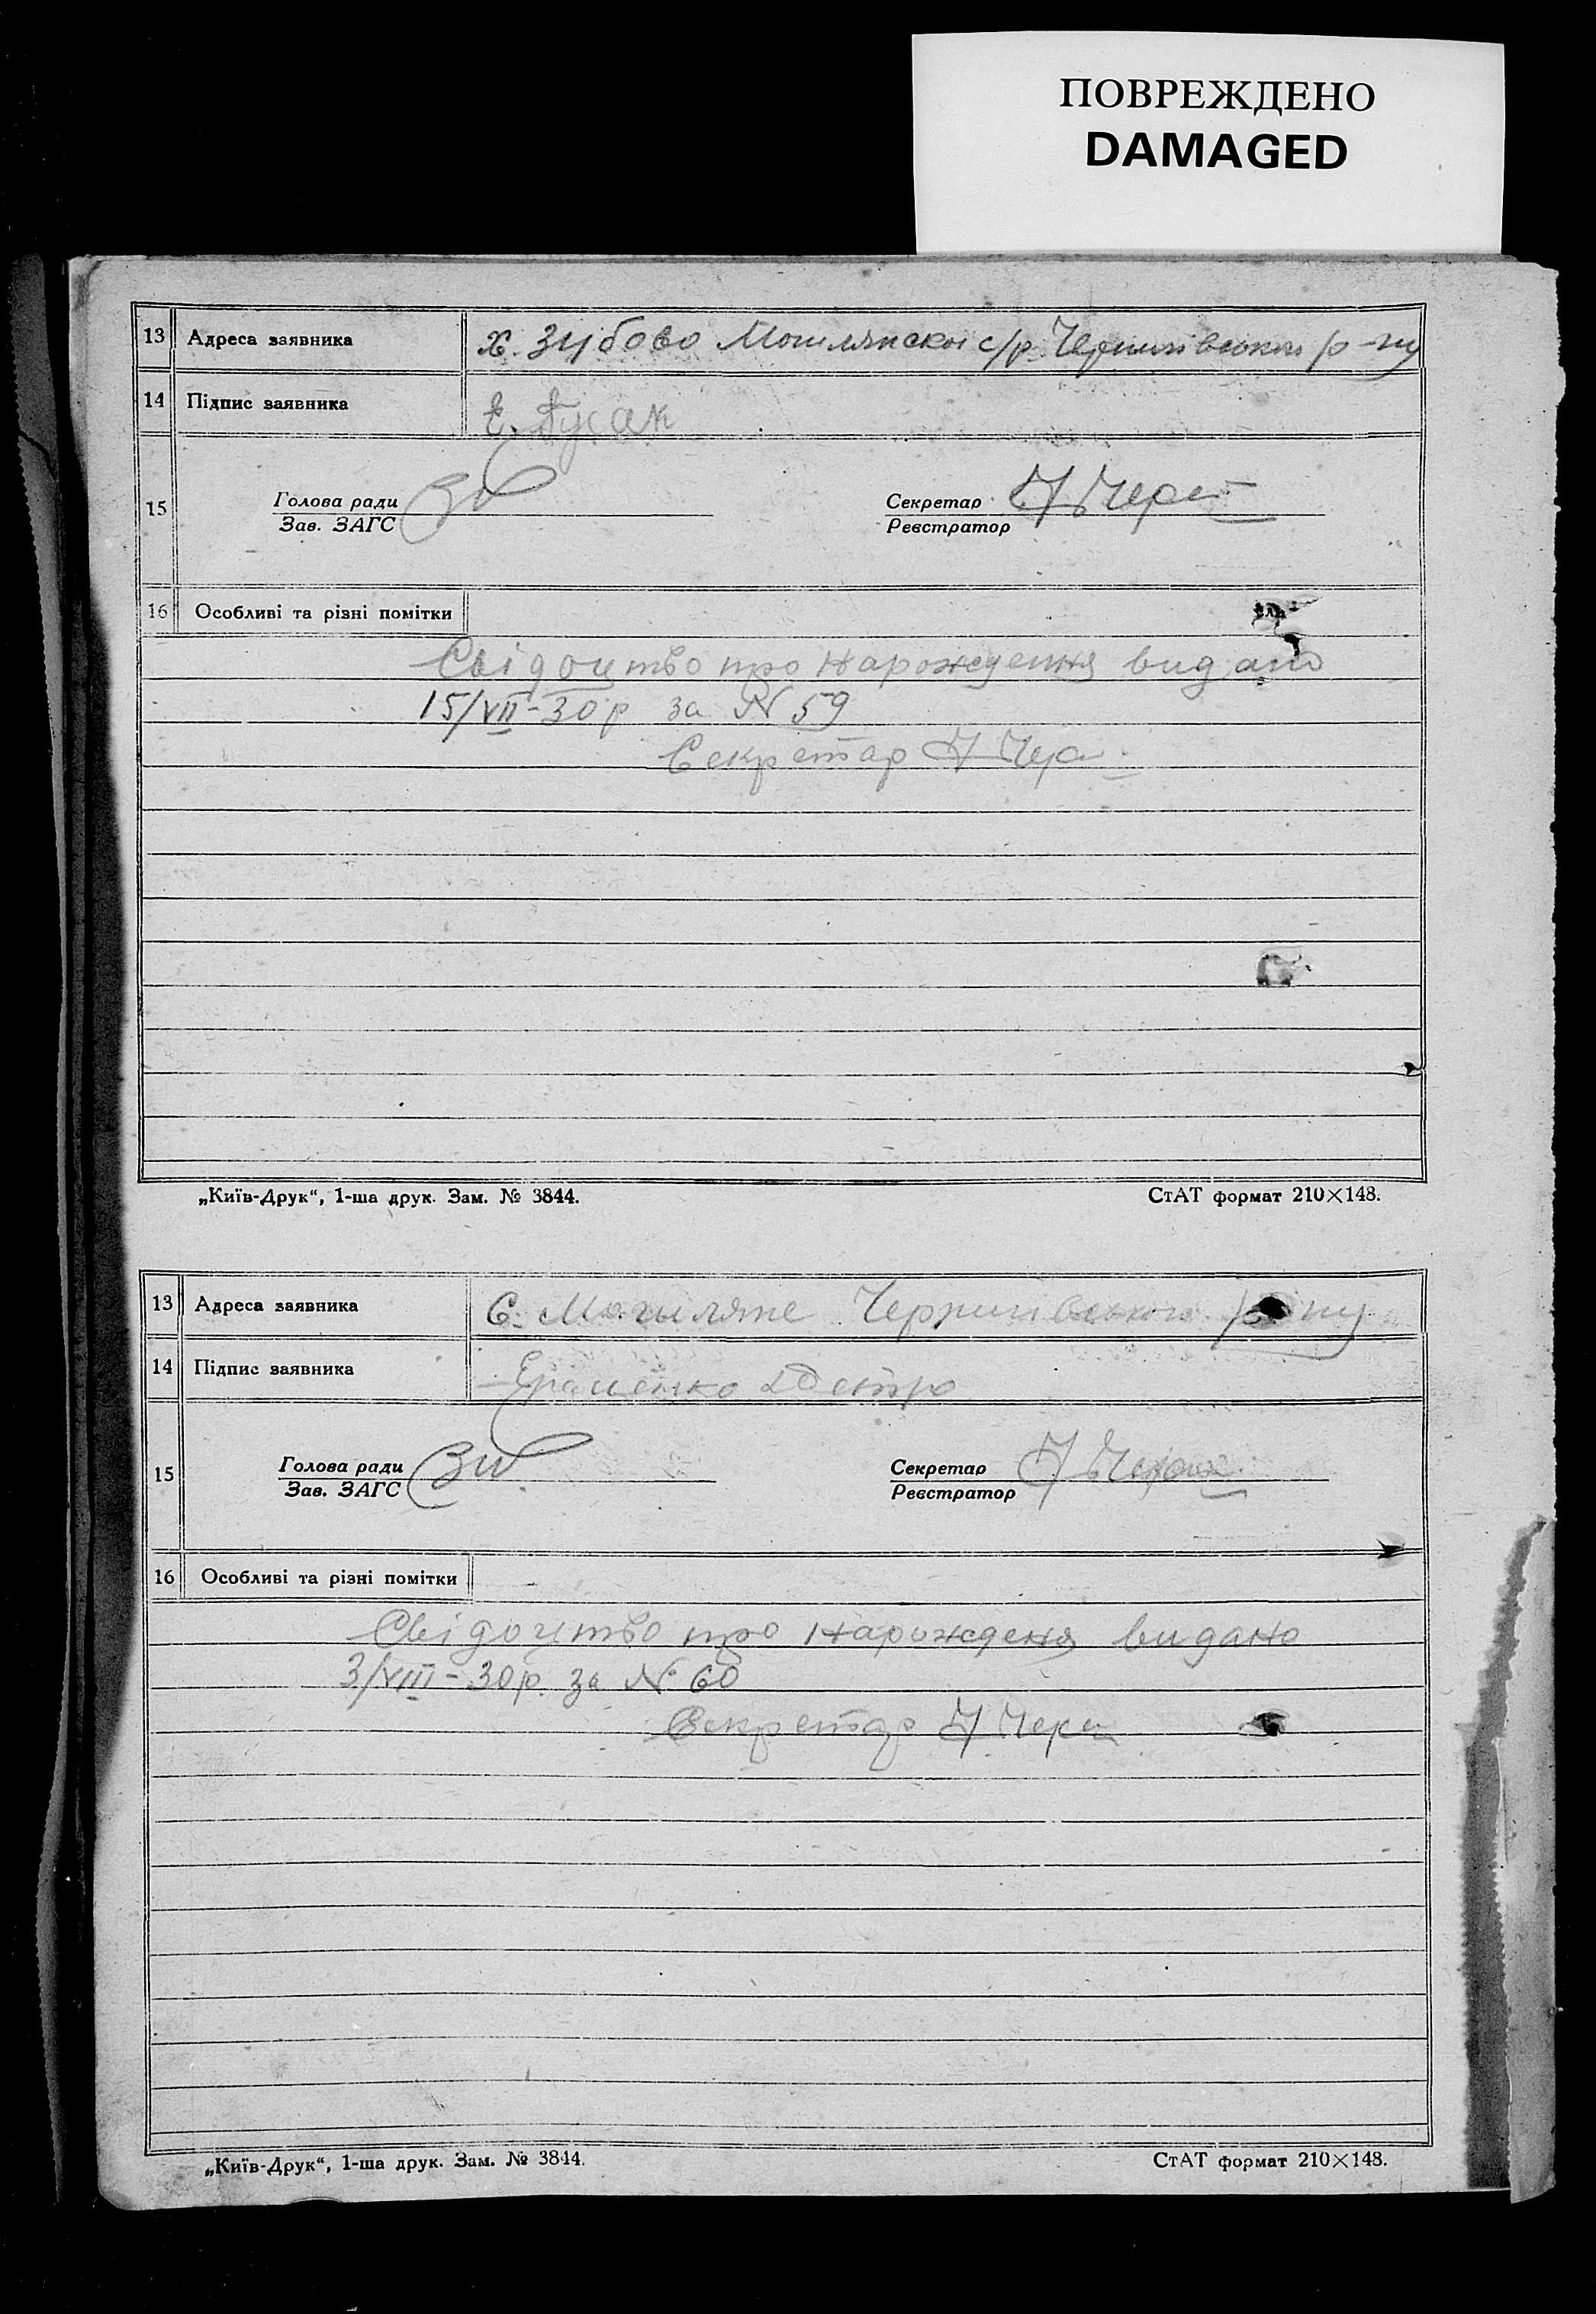 ПОВРЕЖДЕНО
DAMAGED
13 Адреса заявника х. Зубово с/р. Чернигівського р-ну
14 Підпис заявника Е.
15 Голова ради Секретар
Зав. ЗАГС Реєстратор
16 Особливі та різні помітки
Свідоцтво про народження видано
15/VII-30 р за № 59
Секретар
„Київ-Друк“, 1-ша друк. Зам. № 3844. СтАТ формат 210×148.
13 Адреса заявника С. Могиляне Чернигівського
14 Підпис заявника
15 Голова ради Секретар
Зав. ЗАГС Реєстратор
16 Особливі та різні помітки
Свідоцтво про народженя видано
3/VIII-30 р. за № 60
Секретар
„Київ-Друк“, 1-ша друк. Зам. № 3844. СтАТ формат 210×148.